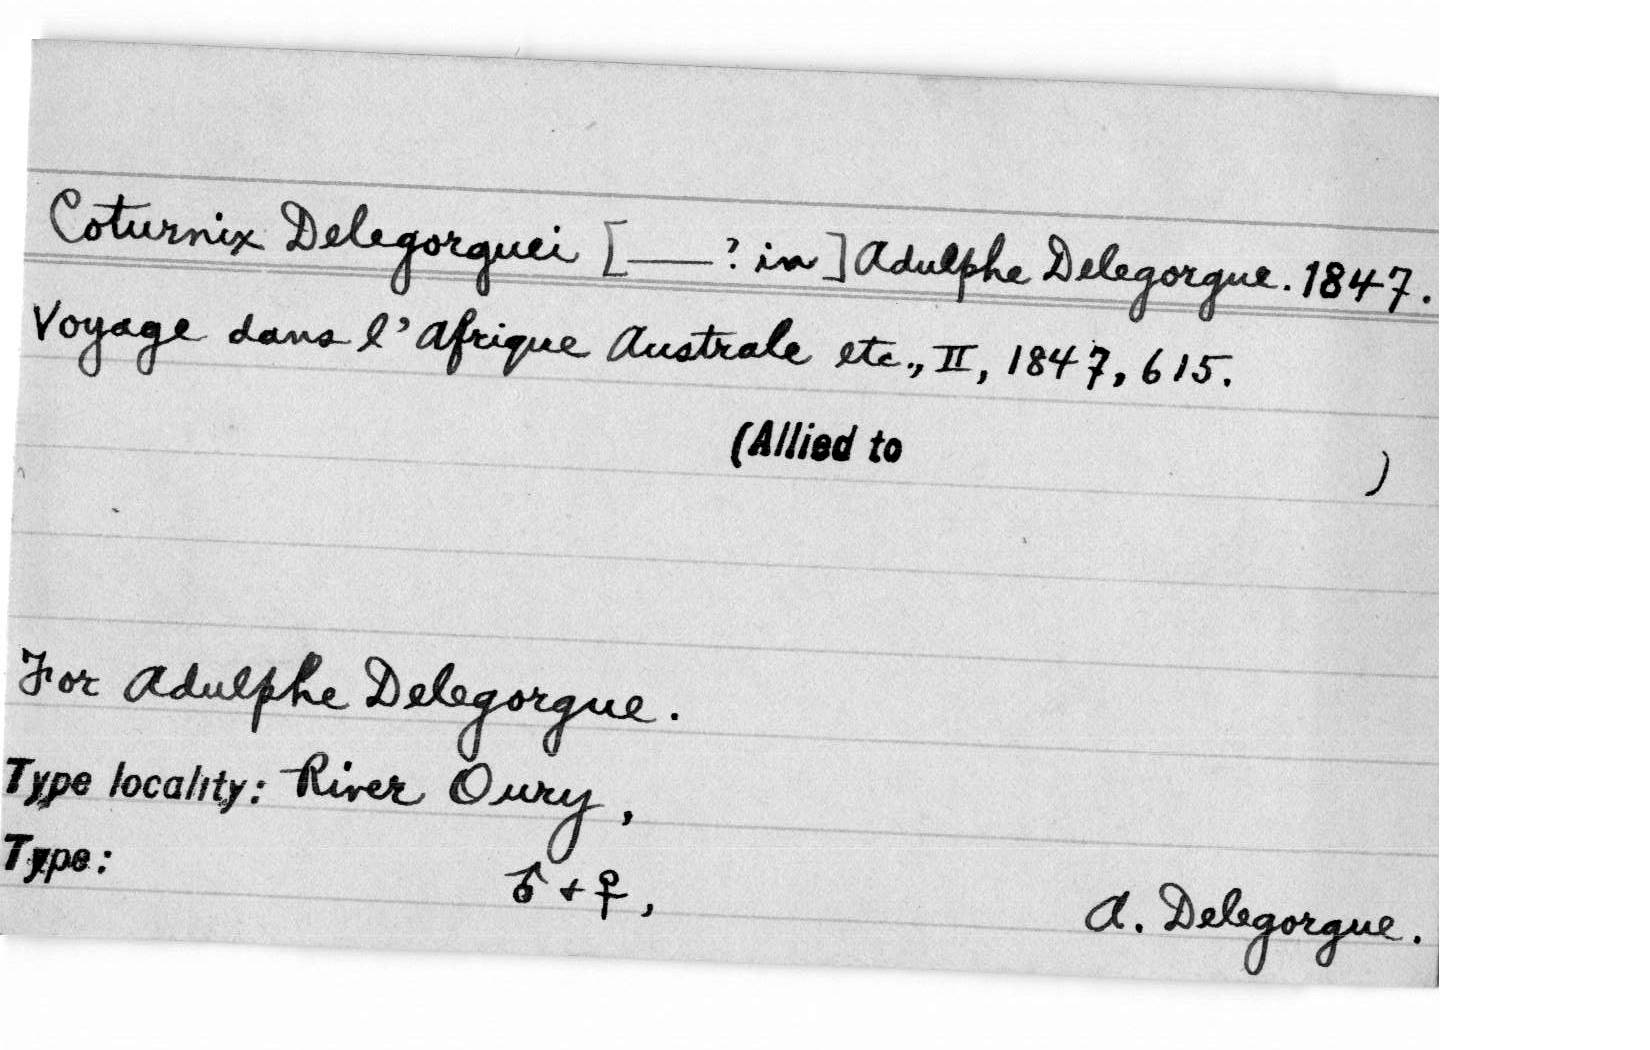 Coturnix Delegorguei [___? in] Adulphe Delegorgue. 1847.
Voyage dans l'Afrique Australe etc., II, 1847, 615.
(Allied to )
For Adulphe Delegorgue.
Type locality: River Oury,
Type: ♂ + ♀, A. Delegorgue.